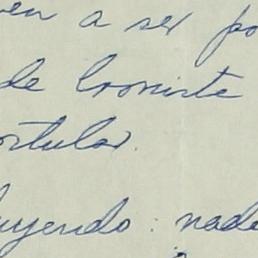 en a ser po
de Cronista
ortular.
luyendo: nada